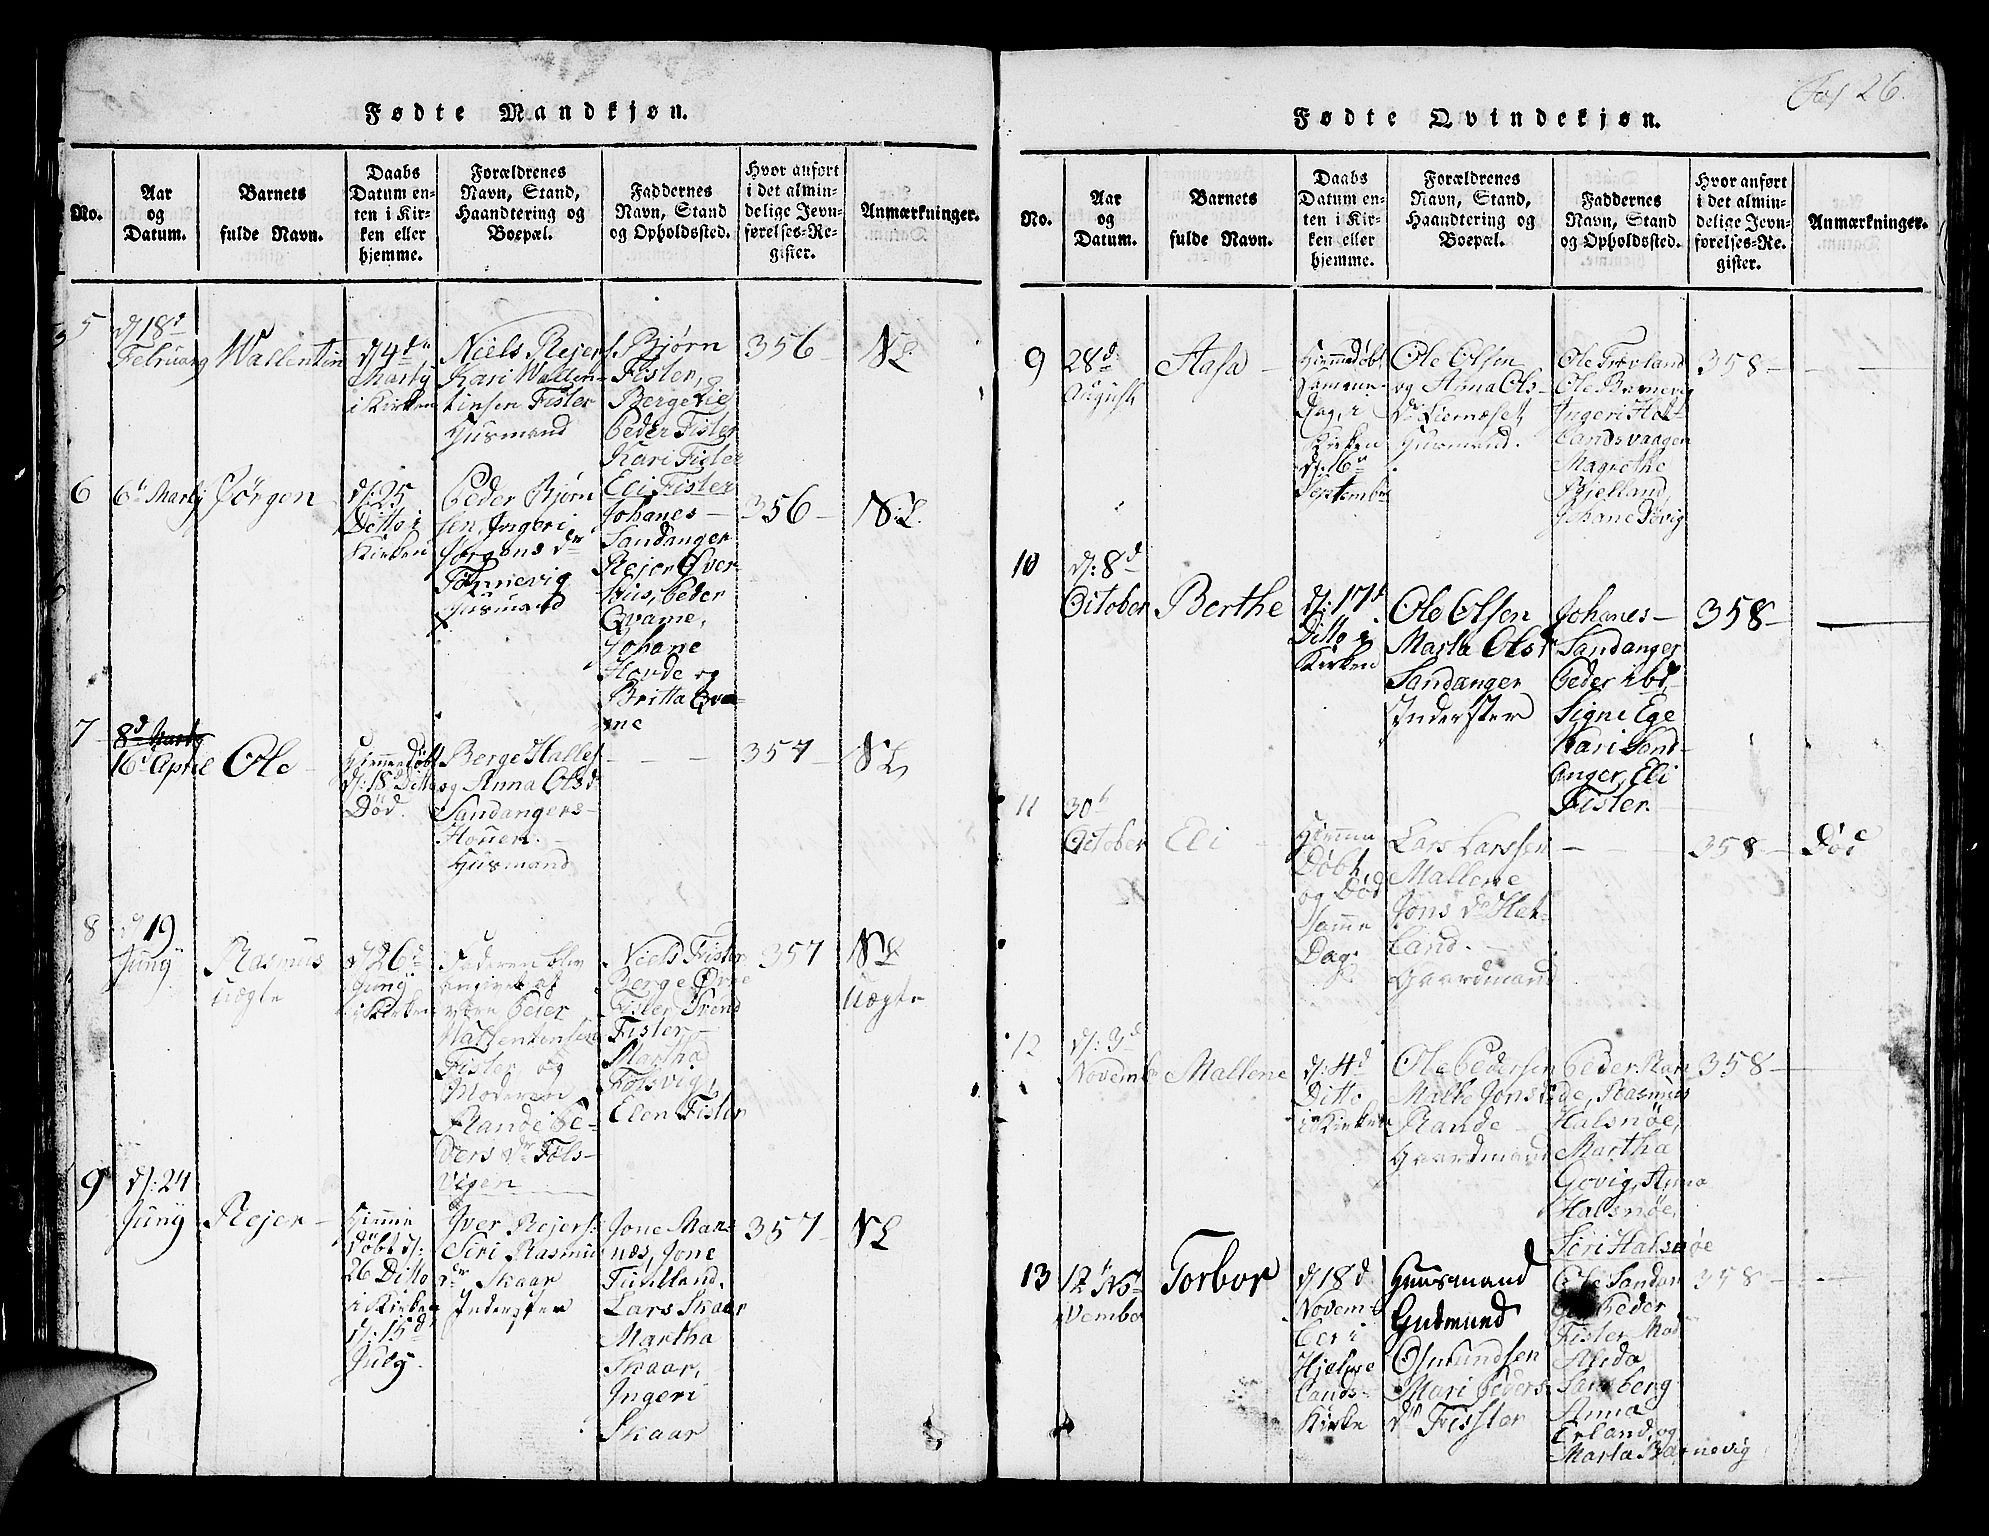 Fødte Mandkjøn.
No.
Aar
og
Datum.
Barnets
fulde Navn.
Daabs
Datum en-
ten i Kir-
ken eller
hjemme.
Forældrenes
Navn, Stand,
Haandtering og
Boepæl.
Faddernes
Navn, Stand
og Opholdssted.
Hvor anført
i det almin-
delige Jevn-
førelses-Re-
gister.
Anmærkninger.
5
d/18d
February
Wallentin
d/4de
Marty
i Kirken
Niels Rejers.
Kari Wallen-
tinsen Fister
Huusmand
Bjørn
Fister,
Berge Lie
Peder Fister
Kari Fister
Eli Fister
356
NL
6
6d Marty
Jørgen
d/:25
Ditto i
Kirken
Peder Bjørn
sen, Ingeri
Jørgens dr
Tømnevig
Huusmand
Johanes
Sandanger
Rejer Øver-
Huus, Peder
Qvame,
Johane
Horde og
Britta Qva-
me
356
NL.
7
8d Marty
16d Aprile
Ole
Hiemmedøbt
d/:18d Ditto
Død.
Berge Halles
og Anna Olsd
Sandangers-
Houen.
Huusmand
357
NL
8
d 19
Juny
Rasmus
Uægte
d/26d
Juny
i Kirken
Faderen blev
angivet at
være Peder
Wallentinsen
Fister, og
Moderen
Randi Pe-
ders dr Føls-
vigen
Niels Fister
Berge Øvre
Fister, Trond
Fister
Martha
Følsvig,
Elen Fister
357
NL
Uægte
9
d/:24
Juny
Rejer
Hiemme
Døbt d/:
26 Ditto
i Kirken
d/:15d
July.
Iver Rejers:
Siri Rasmus
dr Skaar
Inderster
Jone Mar-
næs, Jone
Fuhlland.
Lars Skaar
Martha
Skaar,
Ingeri
Skaar
357
NL
Fol 26.
Fødte Qvindekjøn.
No.
Aar
og
Datum.
Barnets
fulde Navn.
Daabs
Datum en-
ten i Kir-
ken eller
hjemme.
Forældrenes
Navn, Stand,
Haandtering og
Boepæl.
Faddernes
Navn, Stand
og Opholdssted.
Hvor anført
i det almin-
delige Jevn-
førelses-Re-
gister.
Anmærkninger.
9
28d
Augusti
Aasa
Hiemmedøbt
samme
Dag, i
Kirken
d/:6d
September
Ole Olsen
og Anna Ols-
dr Liernæset
Huusmand.
Ole Trovland
Ole Barnevig
Ingeri Het-
landsvaagen
Magrethe
Bielland,
Johane Døvig
358
10
d/:8d
October
Berthe
d/:17d
Ditto i
Kirken
Ole Olsen
Marta Olsdr
Sandanger
Inderster
Johanes
Sandanger
Peder ibd.
Signe Ege
Kari Sand-
anger, Eli
Fister.
358
11
30d
October
Eli
Hiemme
Døbt
og Død
samme
Dag.
Lars Larssen
Mallene
Jons dr Het-
land.
Gaardmand
358
Død
12
d/:3d
Novemb
Mallene
d/:4d
Ditto
i Kirken
Ole Pedersen
Malle Jonsd
Rande
Gaardmand
Peder Ran
de, Rasmus
Halsnøe,
Martha
Govig, Anna
Halsnøe,
Siri Halsnøe
358
13
12d No-
vember
Torbor
d/18d
Novem-
ber i
Hjelme
lands-
Kirke
Huusmand
Gudmund
Osmundsen
Mari Peders
dr Fisster
Ole Sandan
ger Peder
Fister Mad
Alida
Sandberg
Anna
Erland, og
Marta Barnevig
358